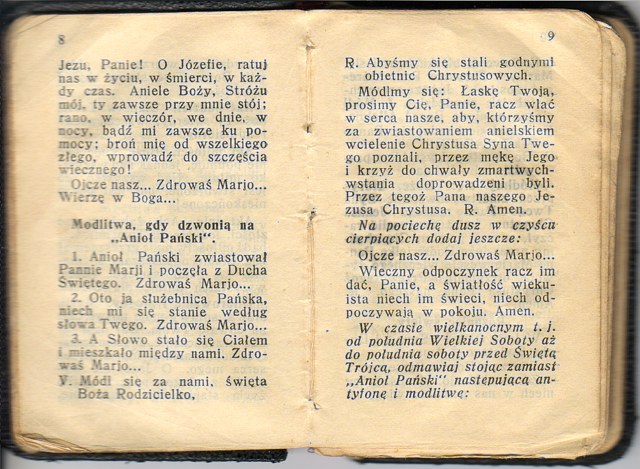 8
Jezu, Panie! O Józefie, ratuj
nas w życiu, w śmierci, w każ-
dy czas. Aniele Boży, Stróżu
mój, ty zawsze przy mnie stój;
rano, w wieczór, we dnie, w
nocy, bądź mi zawsze ku po-
mocy; broń mię od wszelkiego
złego, wprowadź do szczęścia
wiecznego!
Ojcze nasz... Zdrowaś Marjo...
Wierzę w Boga...
Modlitwa, gdy dzwonią na
„Anioł Pański“.
1. Anioł Pański zwiastował
Pannie Marji i poczęła z Ducha
Świętego. Zdrowaś Marjo...
2. Oto ja służebnica Pańska,
niech mi się stanie według
słowa Twego. Zdrowaś Marjo...
3. A Słowo stało się Ciałem
i mieszkało między nami. Zdro-
waś Marjo...
V. Módl się za nami, święta
Boża Rodzicielko,
9
R. Abyśmy się stali godnymi
obietnic Chrystusowych.
Módlmy się: Łaskę Twoją,
prosimy Cię, Panie, racz wlać
w serca nasze, aby, którzyśmy
za zwiastowaniem anielskiem
wcielenie Chrystusa Syna Twe-
go poznali, przez mękę Jego
i krzyż do chwały zmartwych-
wstania doprowadzeni byli.
Przez tegoż Pana naszego Je-
zusa Chrystusa. R. Amen.
Na pociechę dusz w czyścu
cierpiących dodaj jeszcze:
Ojcze nasz... Zdrowaś Marjo...
Wieczny odpoczynek racz im
dać, Panie, a światłość wieku-
ista niech im świeci, niech od-
poczywają w pokoju. Amen.
W czasie wielkanocnym t. j.
od południa Wielkiej Soboty aż
do południa soboty przed Świętą
Trójcą, odmawiaj stojąc zamiast
„Anioł Pański“ następującą an-
tyfonę i modlitwę: